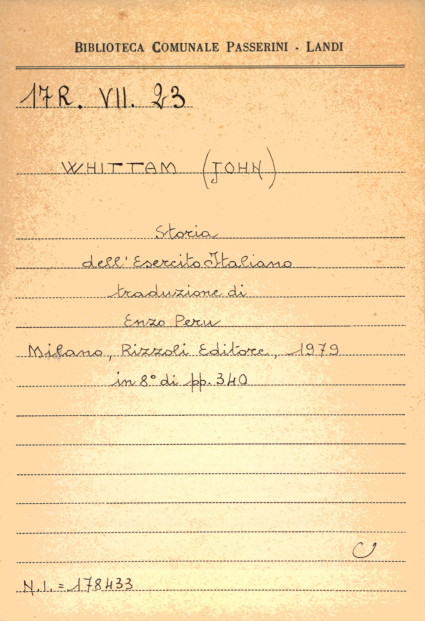 BIBLIOTECA COMUNALE PASSERINI - LANDI
17R. VII. 23
WHITTAM (JOHN)
Storia
dell'Esercito Italiano
traduzione di
Enzo Peru
Milano, Rizzoli Editore, 1979
in 8° di pp. 340
N.I. = 178433